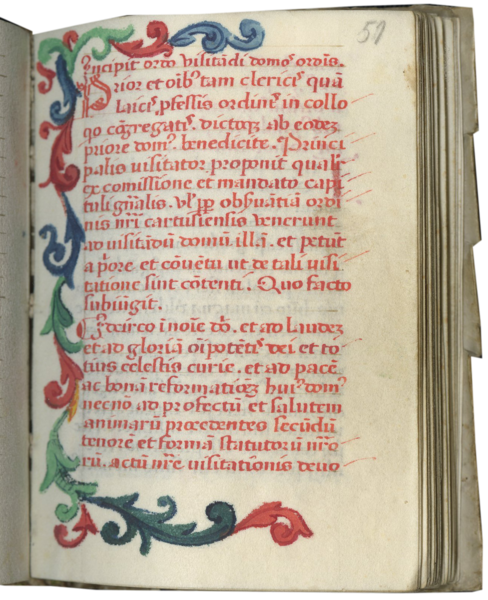 51
Incipit ordo visitādi domos ordis.
Prior et oībꝰ tam clericis quā
laicis pfessis ordinē in collo
qo cōgregatis. dictoqꝫ ab eodeꝫ
priore domꝰ benedicite. Princi
palis visitator proponit qualit
ex comissione et mandato capi
tuli gn̄alis. vl' ꝓp obsuātiā ordi
nis nr̄i cartusiensis venerunt
ad visitādū domū ill.ā. et petūt
a pͥore et cōuētu ut de tali visi
tatione sint cōtenti. Quo facto
subiūgit.
Qͥdcirco ī noīe dn̄i. et ad laudeꝫ
et ad gloriā oīpotētis dei et to
tius celestis curie. et ad pacē
ac bonā reformatioēꝫ huiꝰ domꝰ
necnō ad profectū et salutem
animarū procedentes secūdū
tenorē et formā statutorū nr̄o
rū. actū nr̄e visitationis deuo